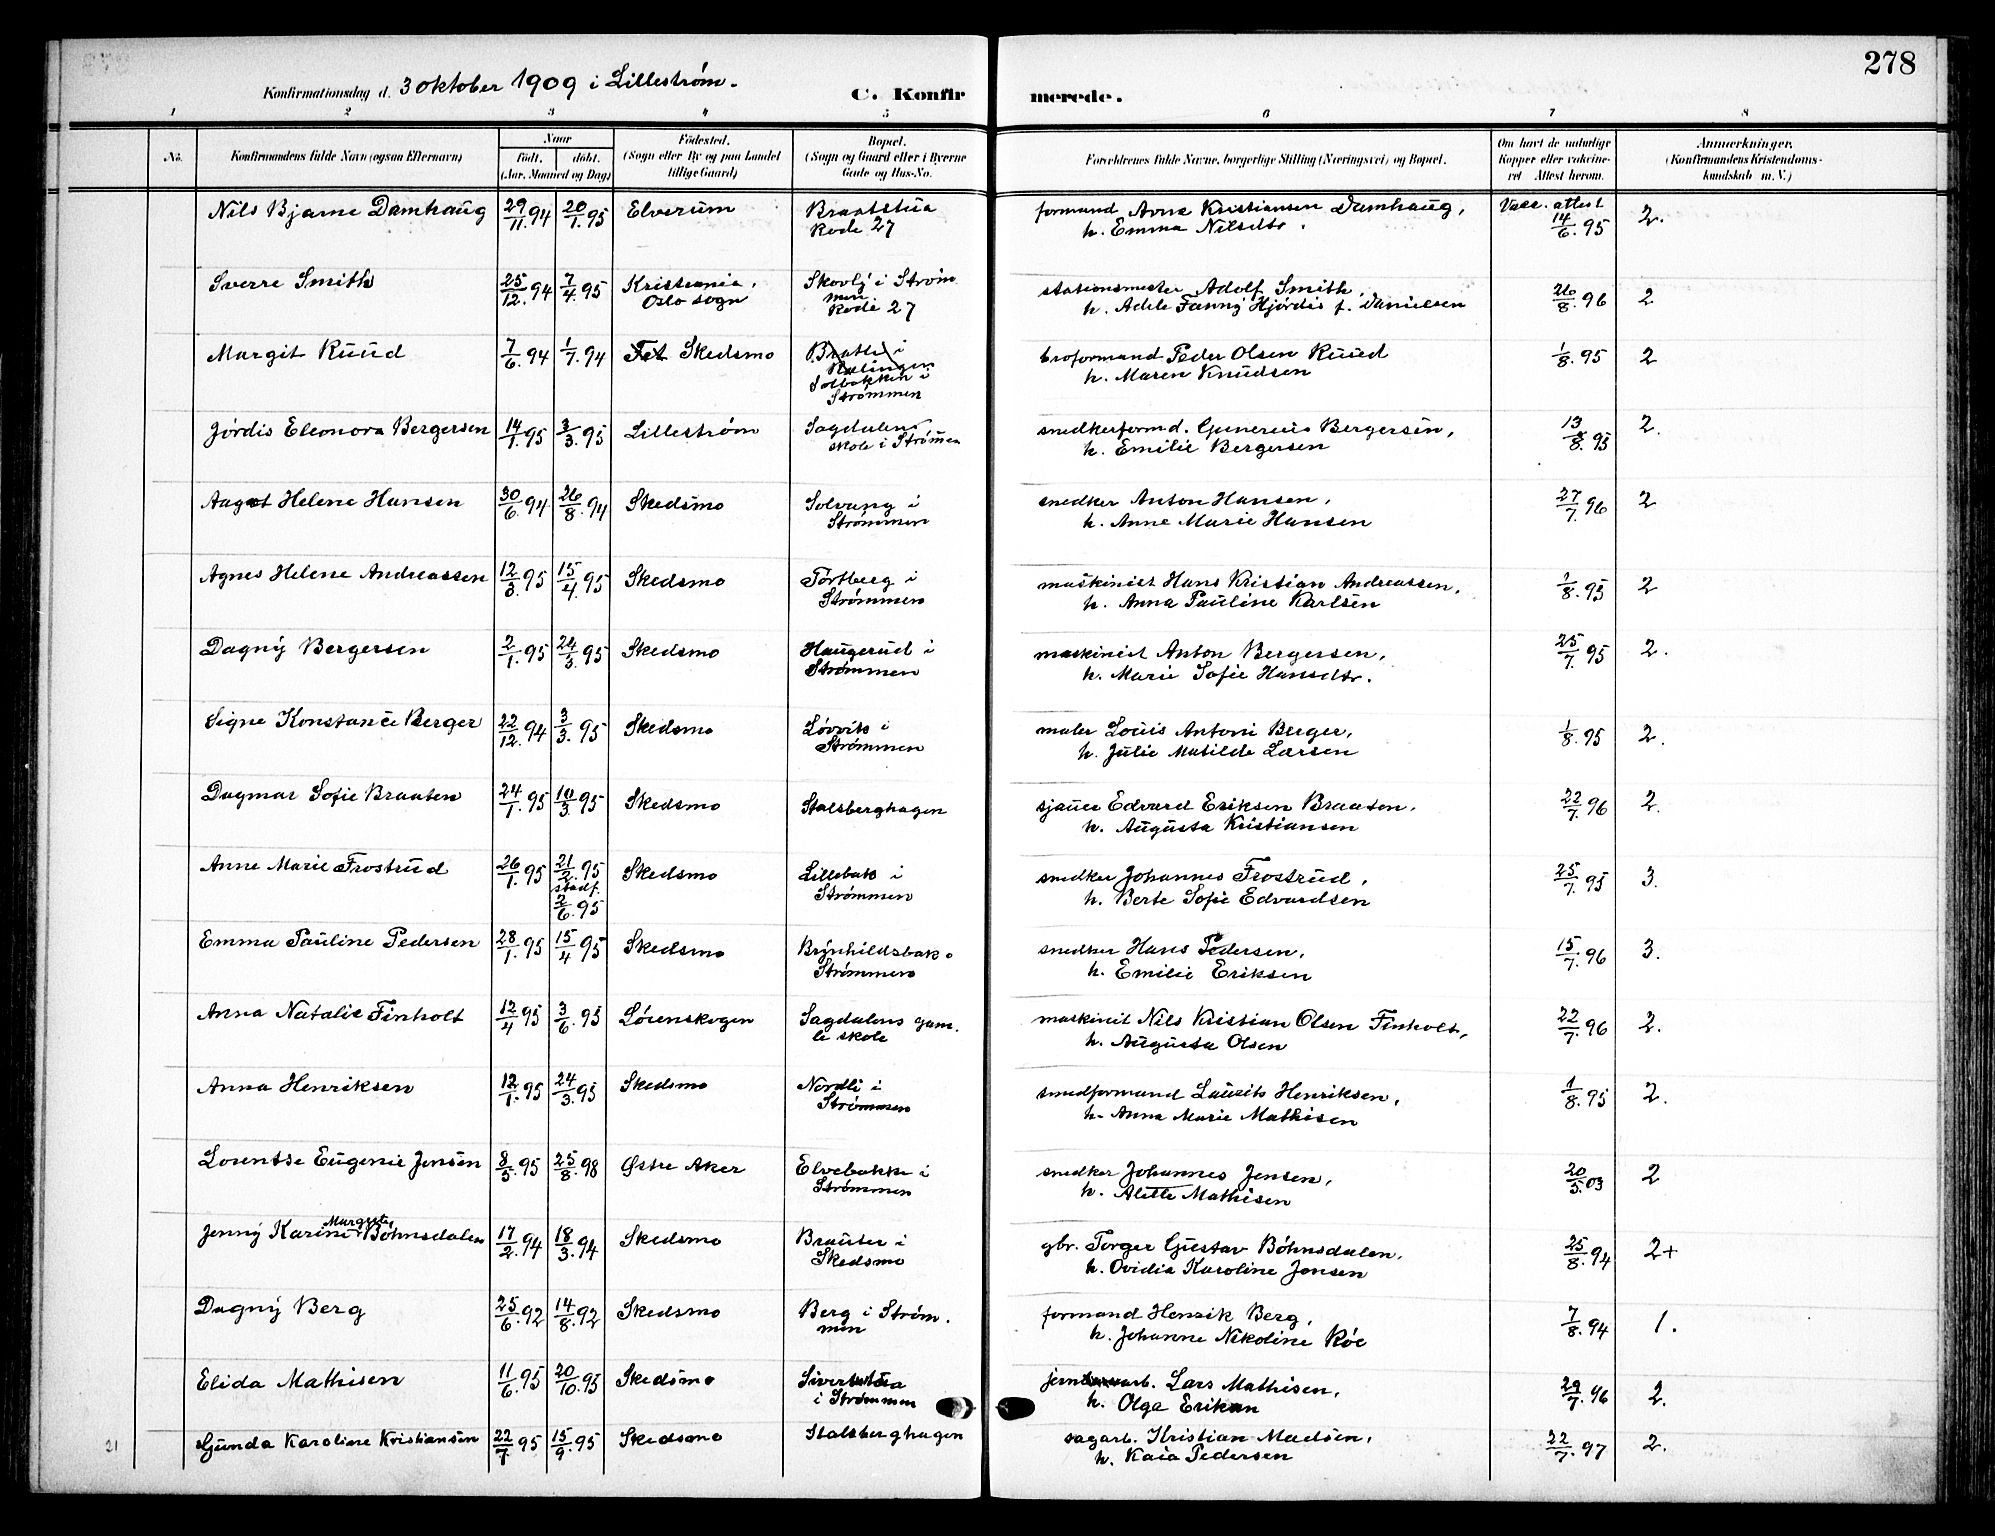 278
Konfirmationsdag d. 3 oktober 1909 i Lillestrøm.
C. Konfirmerede.
1 2 3 4 5 6 7 8
No. Konfirmandens fulde Navn (ogsaa Efternavn) Naar født. døbt. (Aar, Maaned og Dag) Fødested. (Sogn eller By og paa Landet tillige Gaard) Bopæl. (Sogn og Gaard eller i Byerne Gade og Hus-No.) Forældrenes fulde Navne, borgerlige Stilling (Næringsvei) og Bopæl. Om havt de naturlige Kopper eller vakcineret Attest herom. Anmærkninger. (Konfirmandens Kristendomskundskab m. V.)
Nils Bjarne Damhaug 29/11.94 20/1.95 Elverum Braatstua Rode 27 formand Arne Kristiansen Damhaug, h. Emma Nilsdtr. Vacc. attest 14/6.95 2.
Sverre Smith 25/12.94 7/4.95 Kristiania, Oslo sogn Skovly i Strømmen Rode 27 stationsmester Adolf Smith, h. Adele Fanny Hjørdis f. Danielsen 26/8.96 2
Margit Ruud 7/6.94 1/7.94 Fet Skedsmo Bratli i Rælingen Solbakken i Strømmen broformand Peder Olsen Ruud h. Maren Knudsen 1/8.95 2
Jørdis Eleonora Bergersen 14/1.95 3/3.95 Lillestrøm Sagdalens skole i Strømen snedkerformd. Gunerius Bergersen, h. Emilie Bergersen 13/8.95 2.
Aagot Helene Hansen 30/6.94 26/8.94 Skedsmo Solvang i Strømmen snedker Anton Hansen, h. Anne Marie Hansen 27/7.96 2
Agnes Helene Andreassen 12/3.95 15/4.95 Skedsmo Tortberg i Strømmen maskinist Hans Kristian Andreassen, h. Anna Pauline Karlsen 1/8.95 2
Dagny Bergersen 2/1.95 24/3.95 Skedsmo Haugerud i Strømmen maskinist Anton Bergersen, h. Marie Sofie Hansdtr. 25/7.95 2.
Signe Konstance Berger 22/12.94 3/3.95 Skedsmo Løvvik i Strømmen maler Louis Antoni Berger, h. Julie Matilde Larsen 1/8.95 2.
Dagmar Sofie Braaten 24/1.95 10/3.95 Skedsmo Stalsberghagen sjauer Edvard Eriksen Braaten, h. Augusta Kristiansen 22/7.96 2.
Anne Marie Frostrud 26/1.95 21/2.95 stadf. 2/6.95 Skedsmo Lillebak i Strømmen snedker Johannes Frostrud, h. Berte Sofie Edvardsen 25/7.95 3.
Emma Pauline Pedersen 28/1.95 15/4 95 Skedsmo Brynhildsbak. Strømmen snedker Hans Pedersen, h. Emilie Eriksen 15/7.96 3.
Anna Natalie Finholt 12/4 95 3/6.95 Lørenskogen Sagdalens gamle skole maskinist Nils Kristian Olsen Finholt, h. Augusta Olsen 22/7.96 2.
Anna Henriksen 12/1.95 24/3.95 Skedsmo Nordli i Strømmen smedformand Laurits Henriksen, h. Anna Marie Mathisen 1/8.95 2.
Lorentse Eugenie Jensen 8/5.95 25/8.98 Østre Aker Elvebakke i Strømmen snedker Johannes Jensen, h. Alette Mathisen 20/5.03 2
Jenny Karine Margrete Bøhnsdalen 17/2.94 18/3.94 Skedsmo Brauter i Skedsmo gbr. Torger Gustav Bøhnsdalen, h. Ovidia Karoline Jensen 25/8.94 2+
Dagny Berg 25/6.92 14/8.92 Skedsmo Berg i Strømmen formand Henrik Berg, h. Johanne Nikoline Röe 7/8.94 1.
Elida Mathisen 11/6.95 20/10.95 Skedsmo Siverstua i Strømmen jernarb. Lars Mathisen, h. Olga Eriksen 29/7.96 2.
21 Gunda Karoline Kristiansen 22/7.95 15/9.95 Skedsmo Stalsberghagen sagarb. Kristian Madsen, h. Kaia Pedersen 22/7.97 2.